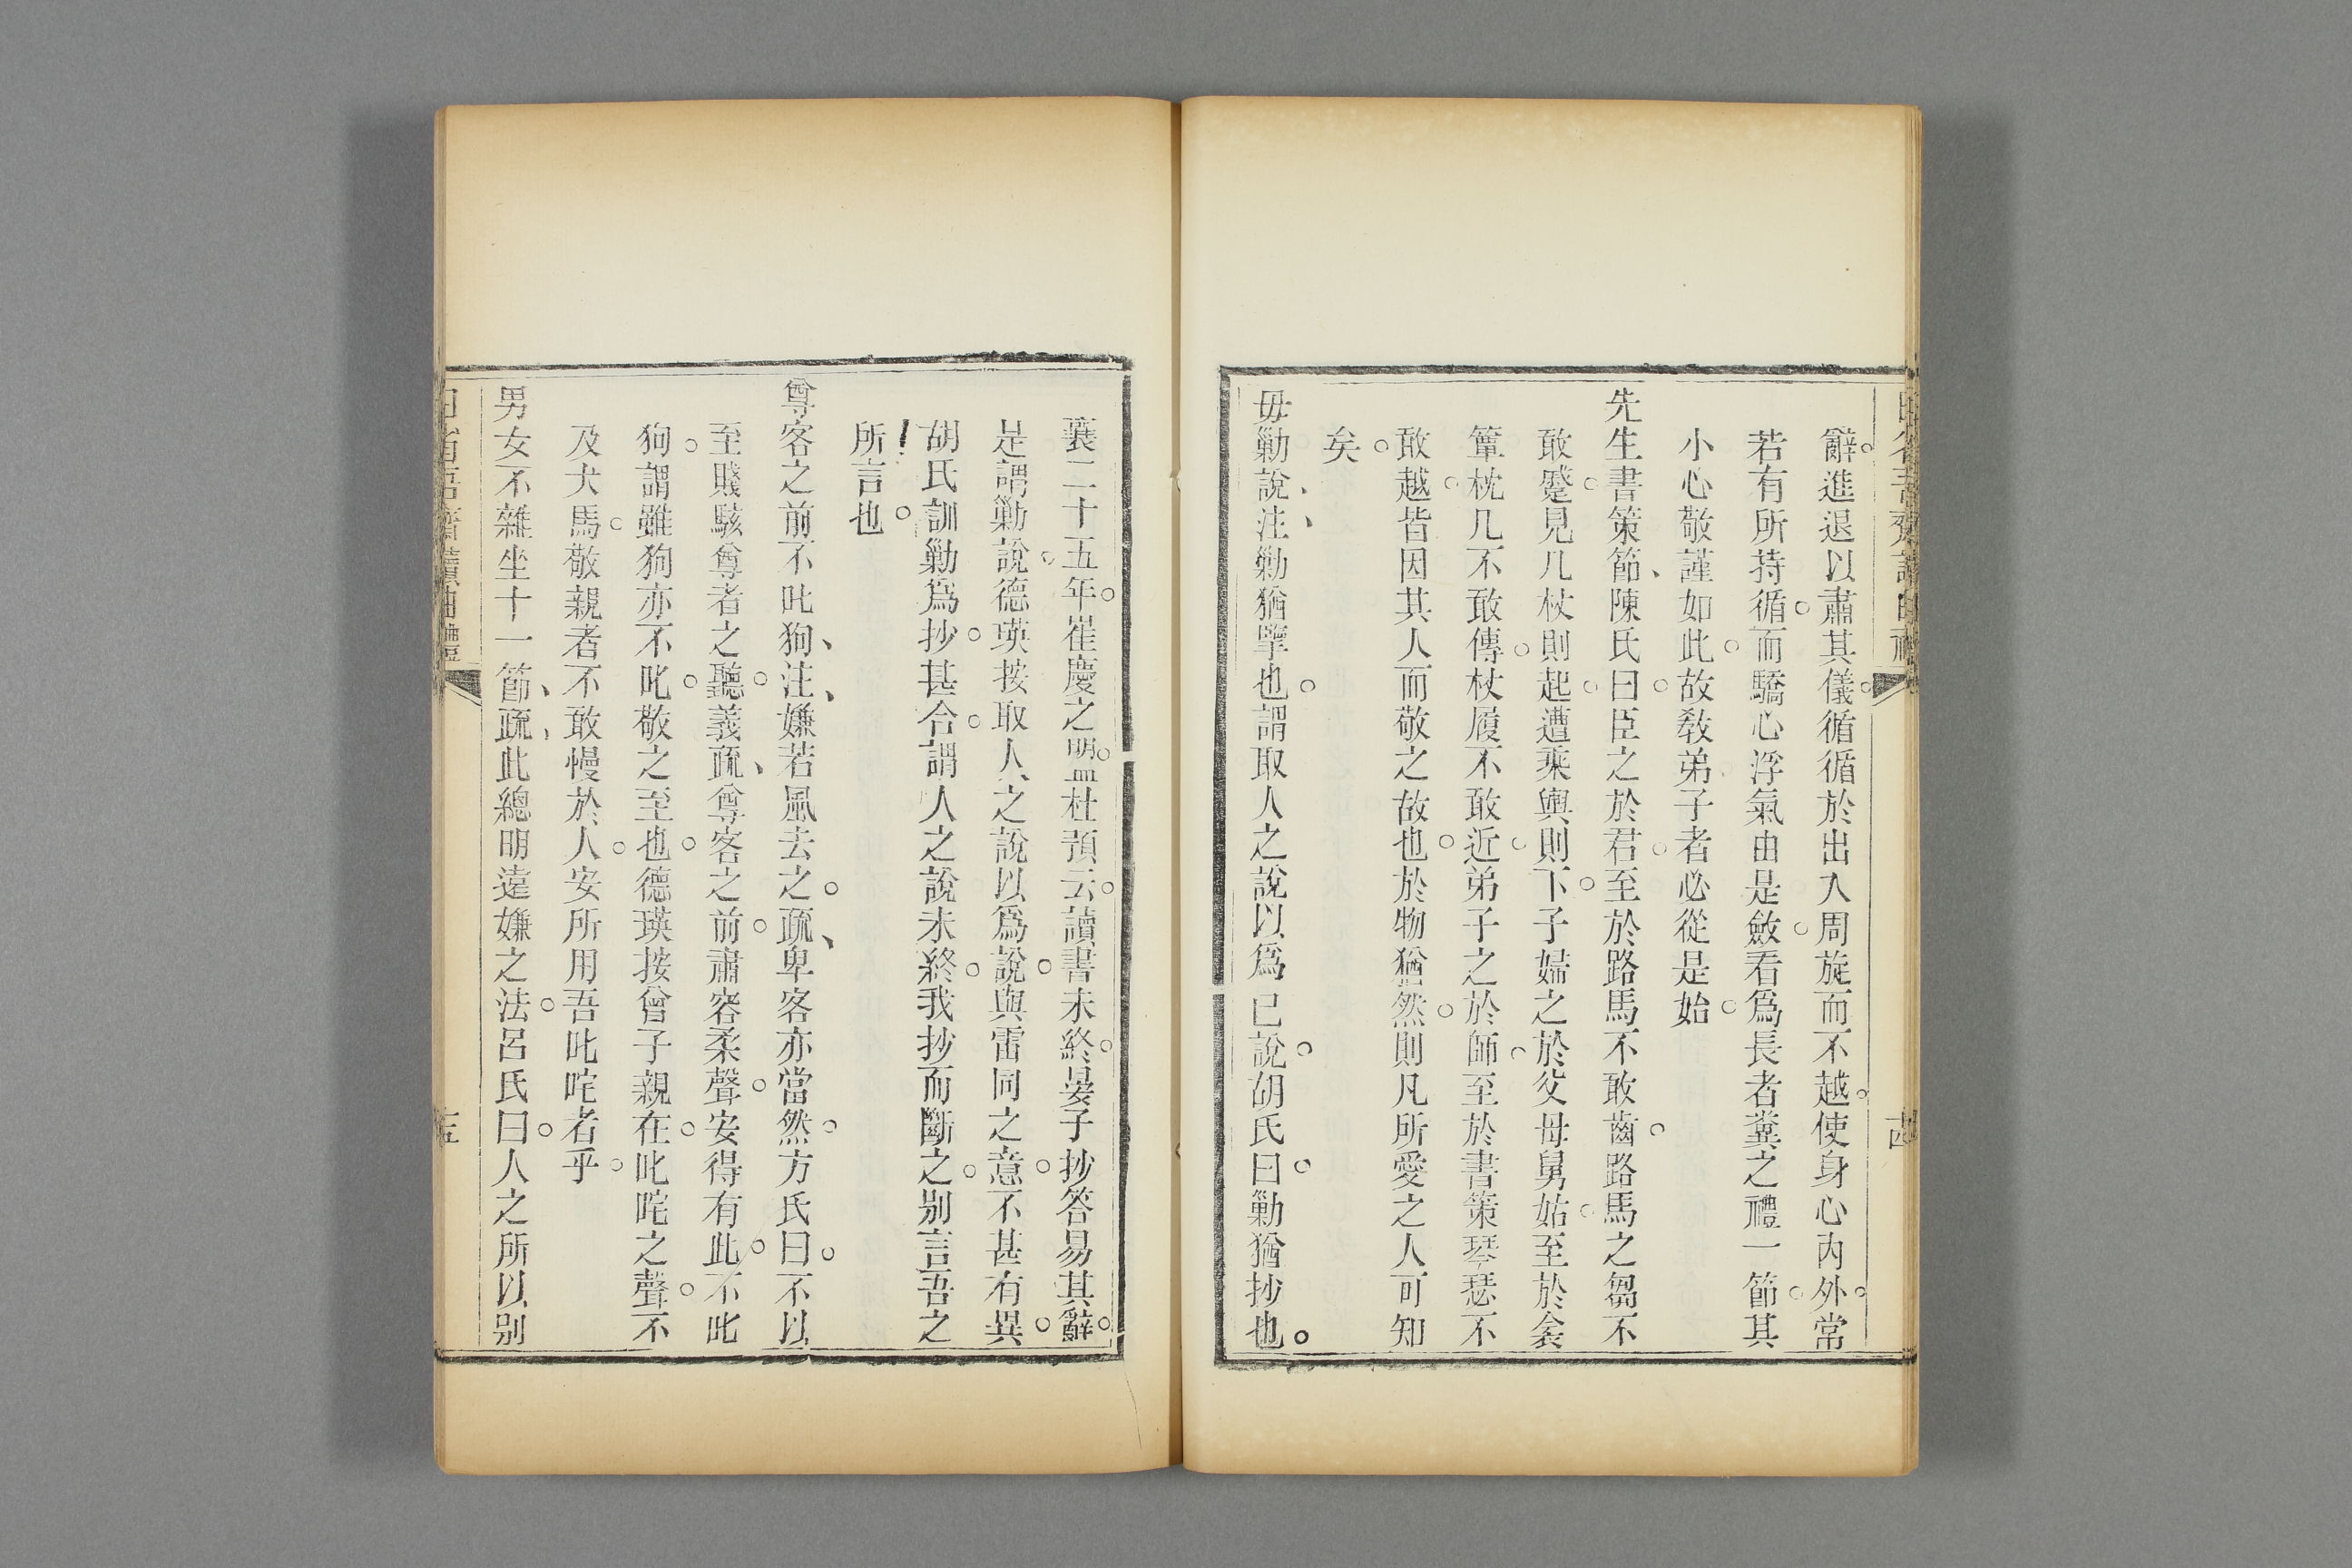 辭進退以肅其儀循循於出入周旋而不越使身心內外常
若有所持循而驕心浮氣由是斂看爲長者糞之禮一節其
小心敬謹如此故敎弟子者必從是始
先生書策節陳氏曰臣之於君至於路馬不敢齒路馬之芻不
敢蹙見几杖則起遭乘輿則下子婦之於父母舅姑至於衾
簟枕几不敢傳杖屨不敢近弟子之於師至於書策琴瑟不
敢越皆因其人而敬之故也於物猶然則凡所愛之人可知
矣
毋勦說注勦猶擥也謂取人之說以爲已說胡氏曰勦猶抄也
十四
襄二十五年崔慶之盟杜預云讀書未終晏子抄答易其辭
是謂勦說德瑛按取人之說以爲說與雷同之意不甚有異
胡氏訓勦爲抄甚合謂人之說未終我抄而斷之别言吾之
所言也
尊客之前不叱狗注嫌若風去之疏卑客亦當然方氏曰不以
至賤駭尊者之聽義疏尊客之前肅容柔聲安得有此不叱
狗謂雖狗亦不叱敬之至也德瑛按曾子親在叱咤之聲不
及犬馬敬親者不敢慢於人安所用吾叱咤者乎
男女不雜坐十一節疏此總明遠嫌之法呂氏曰人之所以别